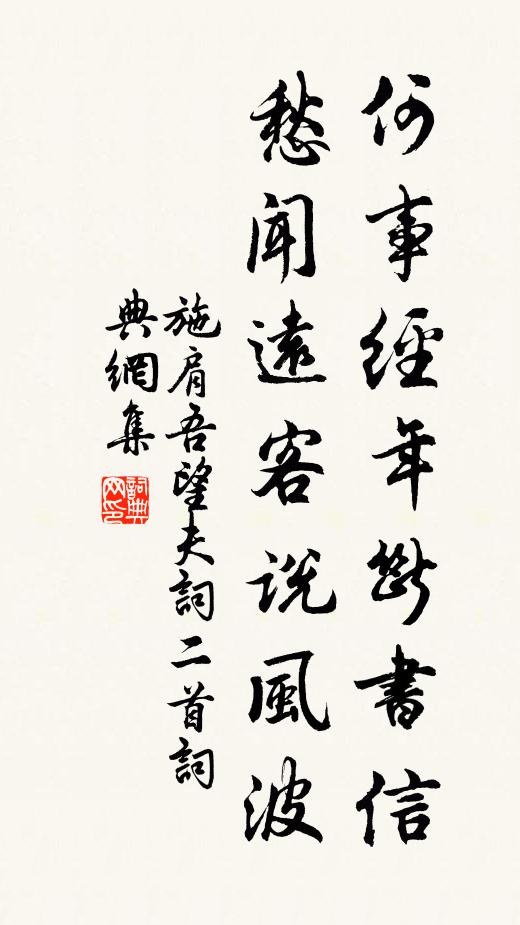 何事經年斷書信
愁聞遠客説風波
施肩吾望夫詞二首詞
典網集
詞典
网印